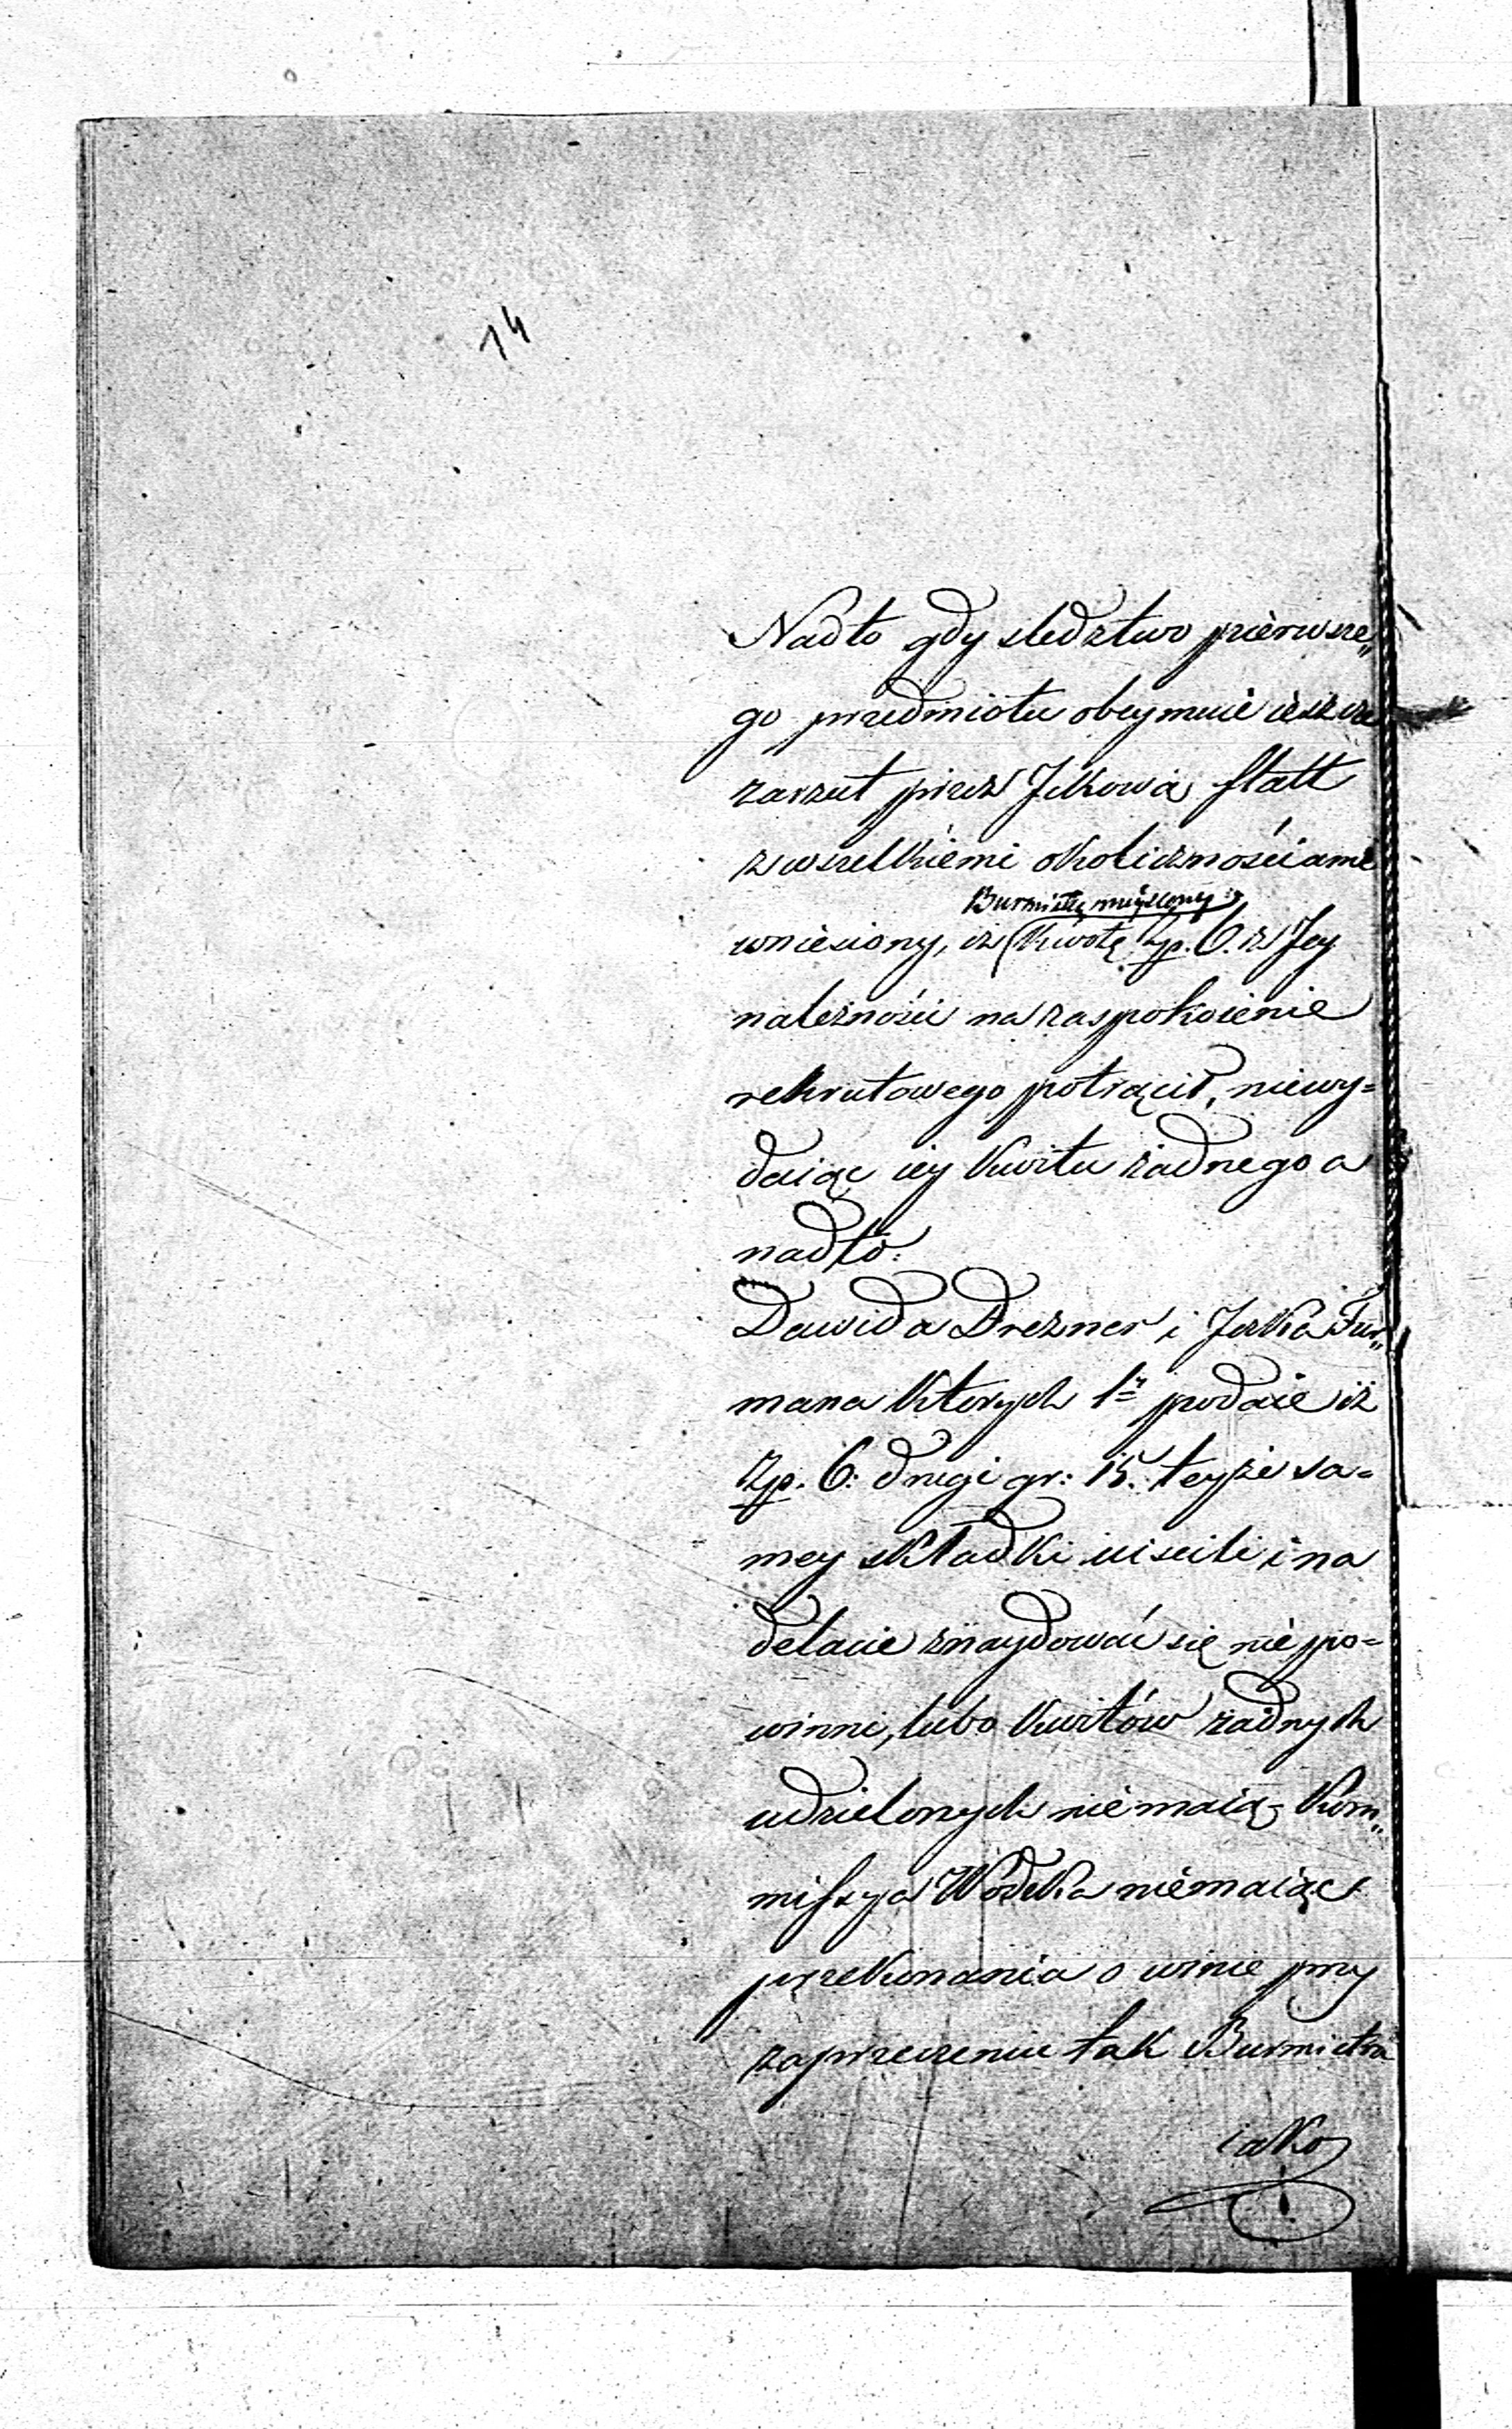 14
Nadto gdy sledztwo pierwsze„
go przedmiotu obeymuie ieszcze
zarzut przez Jckową Statt
z wszelkiemi okolicznościami
Burmistrz
wniesiony, iż kwotę Zp. 6. z Jey
należności na zaspokoienie
rekrutowego potrącił, niewy=
daiąc iey kwitu żadnego a
nadto:
Dawida Drezner i Jcka Fur„
mana których 1y podaie iż
Zp. 6: drugi gr: 15. teyże sa=
mey składki uiscili i na
delacie znaydować się nie po=
winni, lubo kwitów żadnych
udzielonych nie maią, Kom„
missya Wodzka niemaiąc
przekonania o winie przy
zaprzeczeniu tak Burmistrza
iako